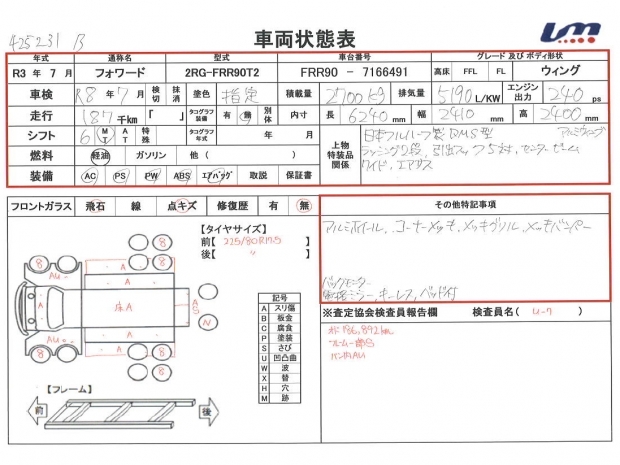 425231 B
車両状態表
LM
年式 通称名 型式 車台番号 グレード 及び ボディ形状
R3 年 7 月 フォワード 2RG-FRR90T2 FRR90 - 7166491 高床 FFL FL ウィング
車検 R8 年 7 月 検切 抹消 塗色 指定 積載量 2700 kg 排気量 5190 L/KW エンジン出力 240 ps
走行 187 千km 「 」 タコグラフ装備 有 無 別体 内寸 長 6240 mm 幅 2410 mm 高 2400 mm
シフト 6 MT AT 特殊 タコグラフ年式 年 月 上物特装品関係 日本フルハーフ製 アルミウィング
燃料 軽油 ガソリン 他 ( ) ラッシング2段、引出フック5対、センタービーム
装備 AC PS PW ABS エアバッグ 取説 保証書 ワイド、エアサス
フロントガラス 飛石 線 点キズ 修復歴 有 無
その他特記事項
【タイヤサイズ】
前【 225/80R17.5 】
後【 〃 】
アルミホイール、コーナーメッキ、メッキグリル、メッキバンパー
バックモニター
キーレス、ベッド付
8 8 8 8
AU
A
A 床A A
A S
S
N
A
AU
8 8 8 8
記号
A スリ傷
B 板金
C 腐食
P 塗装
S さび
U 凹凸曲
W 波
X 替
H 穴
M 跡
※査定協会検査員報告欄 検査員名( U-7 )
186,892km
フレーム一部S
バンパAU
【フレーム】
前
後